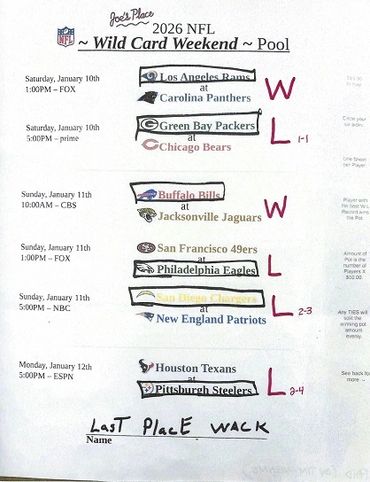 Joe's Place
2026 NFL
~ Wild Card Weekend ~ Pool
Saturday, January 10th
1:00PM – FOX
Los Angeles Rams
at
Carolina Panthers
W
Saturday, January 10th
5:00PM – prime
Green Bay Packers
at
Chicago Bears
L 1-1
Sunday, January 11th
10:00AM – CBS
Buffalo Bills
at
Jacksonville Jaguars
W
Sunday, January 11th
1:00PM – FOX
San Francisco 49ers
at
Philadelphia Eagles
L
Sunday, January 11th
5:00PM – NBC
San Diego Chargers
at
New England Patriots
L 2-3
Monday, January 12th
5:00PM – ESPN
Houston Texans
at
Pittsburgh Steelers
L 2-4
LAST PLACE WACK
Name
One Sheet
per Player
Player with
the
Amount of
Pot is the
number of
Players X
Any TIES will
split the
winning pot
amount
evenly
See back for
more